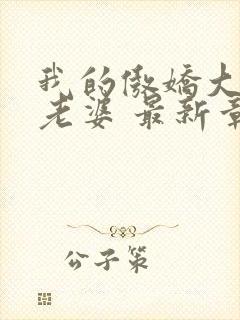 我的傲娇大
老婆 最新章
公子策